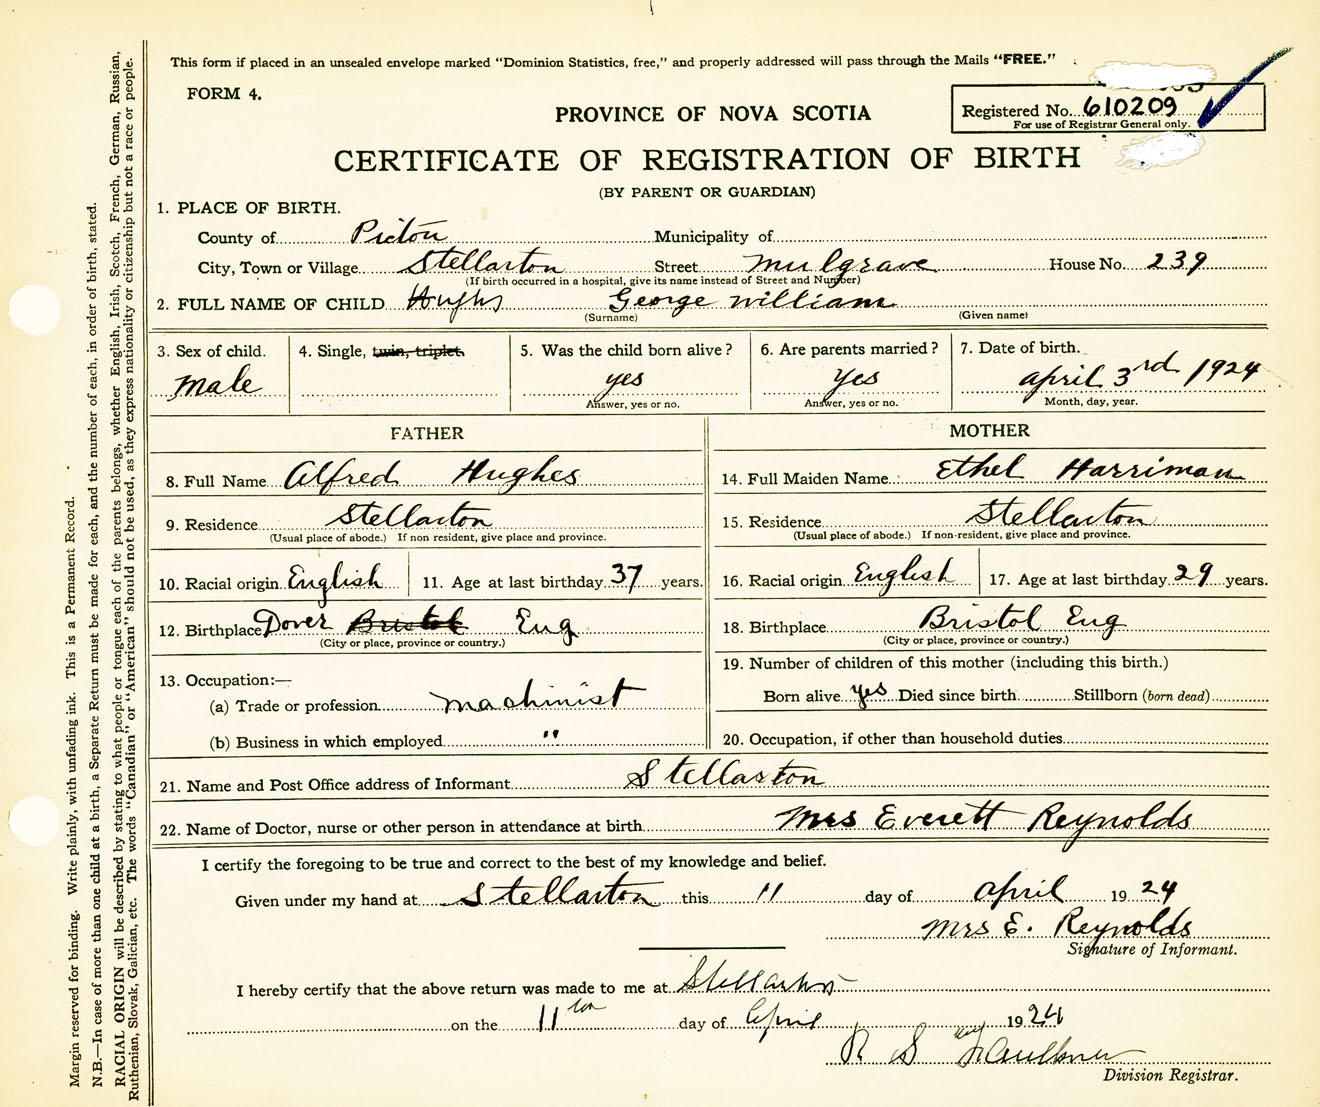 This form if placed in an unsealed envelope marked "Dominion Statistics, free," and properly addressed will pass through the Mails "FREE."
FORM 4.
PROVINCE OF NOVA SCOTIA
Registered No. 610209
For use of Registrar General only.
CERTIFICATE OF REGISTRATION OF BIRTH
(BY PARENT OR GUARDIAN)
1. PLACE OF BIRTH.
County of Pictou Municipality of
City, Town or Village Stellarton Street Mulgrave House No. 239
(If birth occurred in a hospital, give its name instead of Street and Number)
2. FULL NAME OF CHILD Hughs George William
(Surname) (Given name)
3. Sex of child. 4. Single, twin, triplet. 5. Was the child born alive? 6. Are parents married? 7. Date of birth.
Male yes Yes April 3rd 1924
Answer, yes or no. Answer, yes or no. Month, day, year.
FATHER MOTHER
8. Full Name Alfred Hughes 14. Full Maiden Name Ethel Harriman
9. Residence Stellarton 15. Residence Stellarton
(Usual place of abode.) If non resident, give place and province. (Usual place of abode.) If non-resident, give place and province.
10. Racial origin English 11. Age at last birthday 37 years. 16. Racial origin English 17. Age at last birthday 29 years.
12. Birthplace Dover Bristol Eng 18. Birthplace Bristol Eng
(City or place, province or country.) (City or place, province or country.)
13. Occupation:— 19. Number of children of this mother (including this birth.)
(a) Trade or profession Machinist Born alive yes Died since birth Stillborn (born dead)
(b) Business in which employed " 20. Occupation, if other than household duties
21. Name and Post Office address of Informant Stellarton
22. Name of Doctor, nurse or other person in attendance at birth Mrs Everett Reynolds
I certify the foregoing to be true and correct to the best of my knowledge and belief.
Given under my hand at Stellarton this 11 day of April 1924
Mrs E. Reynolds
Signature of Informant.
I hereby certify that the above return was made to me at Stellarton
on the 11th day of April 1924
R S Faulkner
Division Registrar.
Margin reserved for binding. Write plainly, with unfading ink. This is a Permanent Record.
N.B.—In case of more than one child at a birth, a Separate Return must be made for each, and the number of each, in order of birth, stated.
RACIAL ORIGIN will be described by stating to what people or tongue each of the parents belongs, whether English, Irish, Scotch, French, German, Russian,
Ruthenian, Slovak, Galician, etc. The words "Canadian" or "American" should not be used, as they express nationality or citizenship but not a race or people.